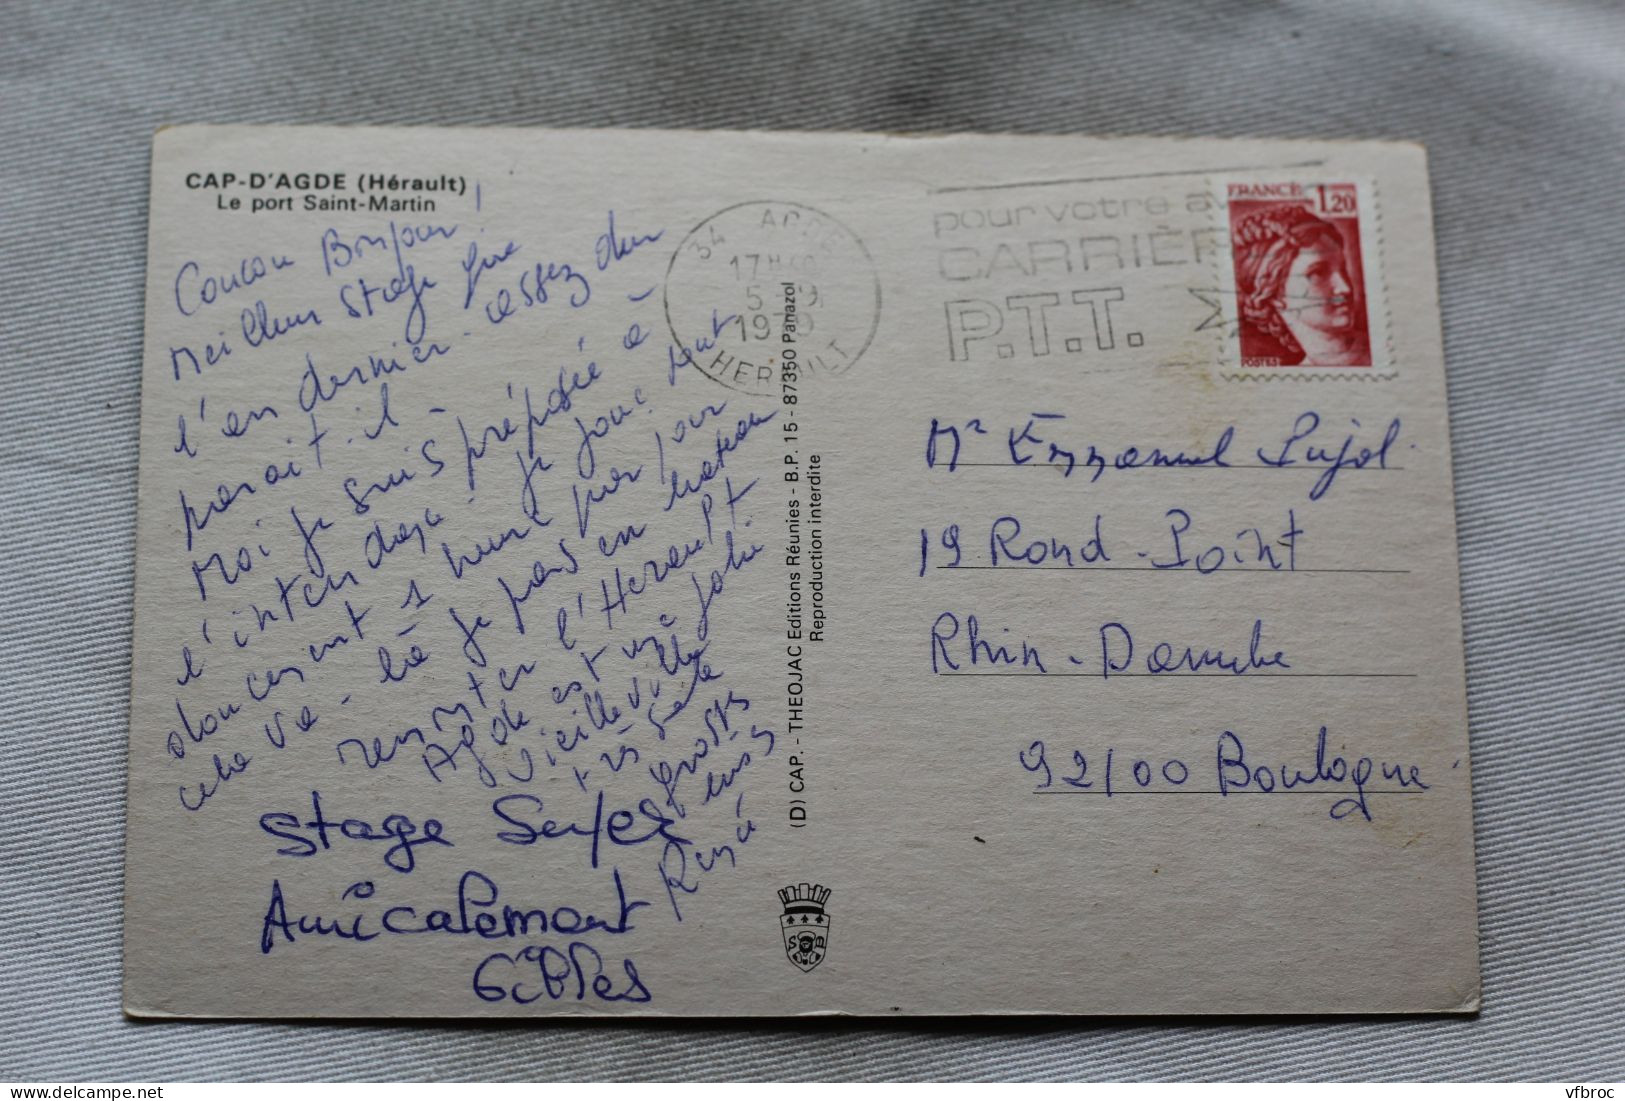 CAP-D'AGDE (Hérault)
Le port Saint-Martin
Coucou Bonjour !
Meilleur stage que
l'an dernier - assez dur
parait-il -
Moi je suis préposée à
l'intendance je joue tout
doucement 1 heure par jour
cela va - là je pars en bateau
remonter l'Herault
Agde est une jolie
vieille ville
très
grosses
bises
Stage Super
Amicalement
Gilles
34 AGDE
17H
5 9
1979
HERAULT
pour votre av
CARRIÈR
P.T.T.
FRANCE 1,20
POSTES
Mr Emmanuel Pujol
19 Rond-Point
Rhin-Danube
92100 Boulogne
(D) CAP. - THEOJAC Editions Réunies - B.P. 15 - 87350 Panazol
Reproduction interdite
S B
vfbroc